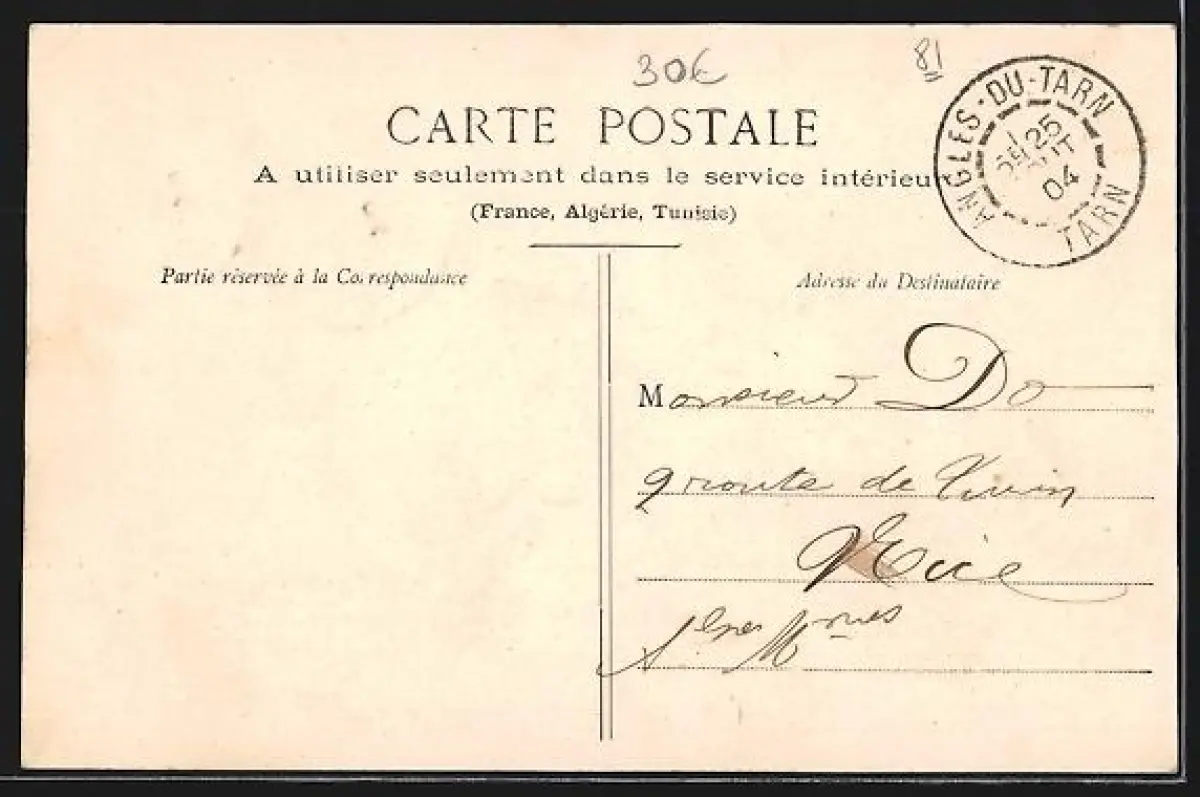 30€
81
CARTE POSTALE
A utiliser seulement dans le service intérieur
(France, Algérie, Tunisie)
ANGLES-DU-TARN
25
04
TARN
Partie réservée à la Correspondance
Adresse du Destinataire
Monsieur Do
9 route de Turin
Nice
Alpes Mmes